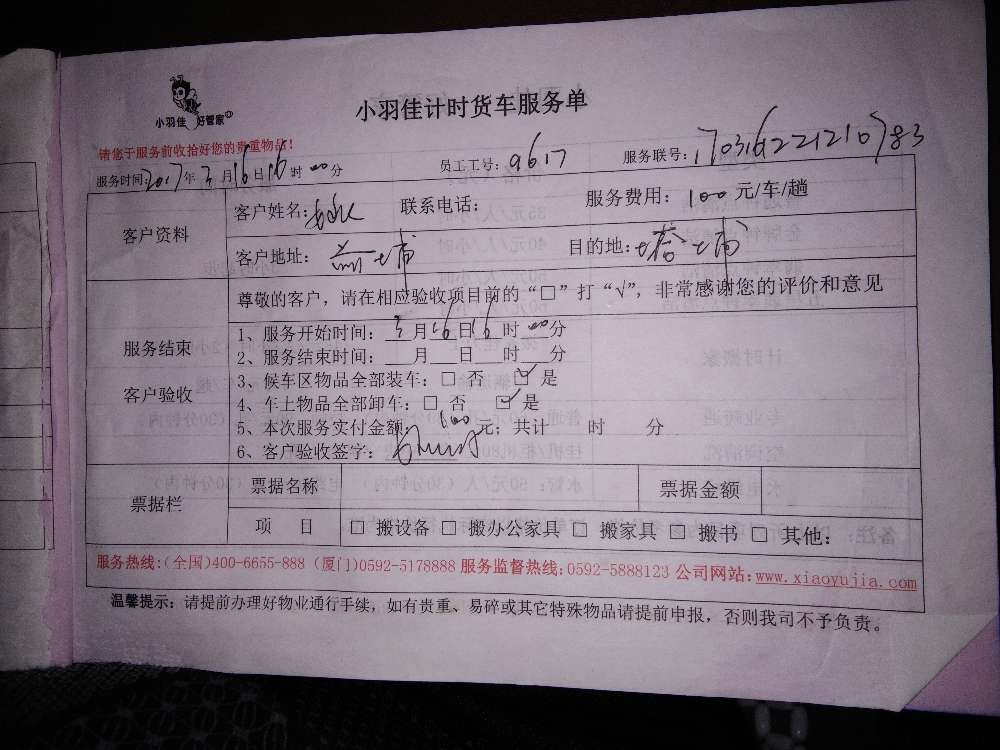 小羽佳 好管家
小羽佳计时货车服务单
请您于服务前收拾好您的贵重物品！
服务时间：2017年3月16日16时00分 员工工号：9617 服务联号：170316221210783
客户资料
客户姓名： 联系电话： 服务费用：100元/车/趟
客户地址：前埔 目的地：塔埔
尊敬的客户，请在相应验收项目前的“□”打“√”，非常感谢您的评价和意见
服务结束
客户验收
1、服务开始时间：3月16日16时00分
2、服务结束时间：＿月＿日＿时＿分
3、候车区物品全部装车：□ 否 ☑ 是
4、车上物品全部卸车：□ 否 ☑ 是
5、本次服务实付金额：100元；共计 时 分
6、客户验收签字：
票据栏
票据名称 票据金额
项 目 □ 搬设备 □ 搬办公家具 □ 搬家具 □ 搬书 □ 其他：
服务热线：(全国)400-6655-888 (厦门)0592-5178888 服务监督热线：0592-5888123 公司网站：www.xiaoyujia.com
温馨提示：请提前办理好物业通行手续，如有贵重、易碎或其它特殊物品请提前申报，否则我司不予负责。